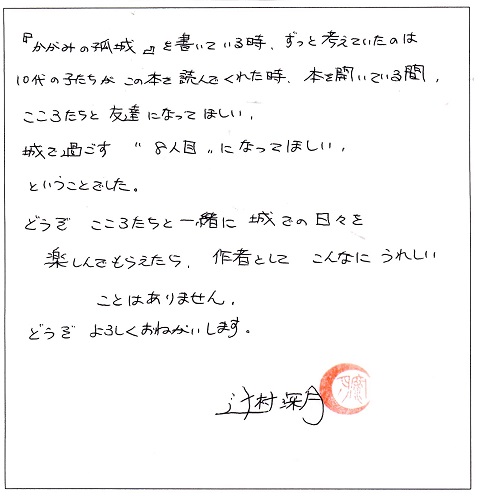 『かがみの孤城』を書いている時、ずっと考えていたのは
10代の子たちが この本を読んでくれた時、本を開いている間、
こころたちと 友達になってほしい、
城で過ごす "8人目"になってほしい、
ということでした。
どうぞ こころたちと一緒に 城での日々を
楽しんでもらえたら、作者として こんなに うれしい
ことはありません。
どうぞ よろしくおねがいします。
辻村深月